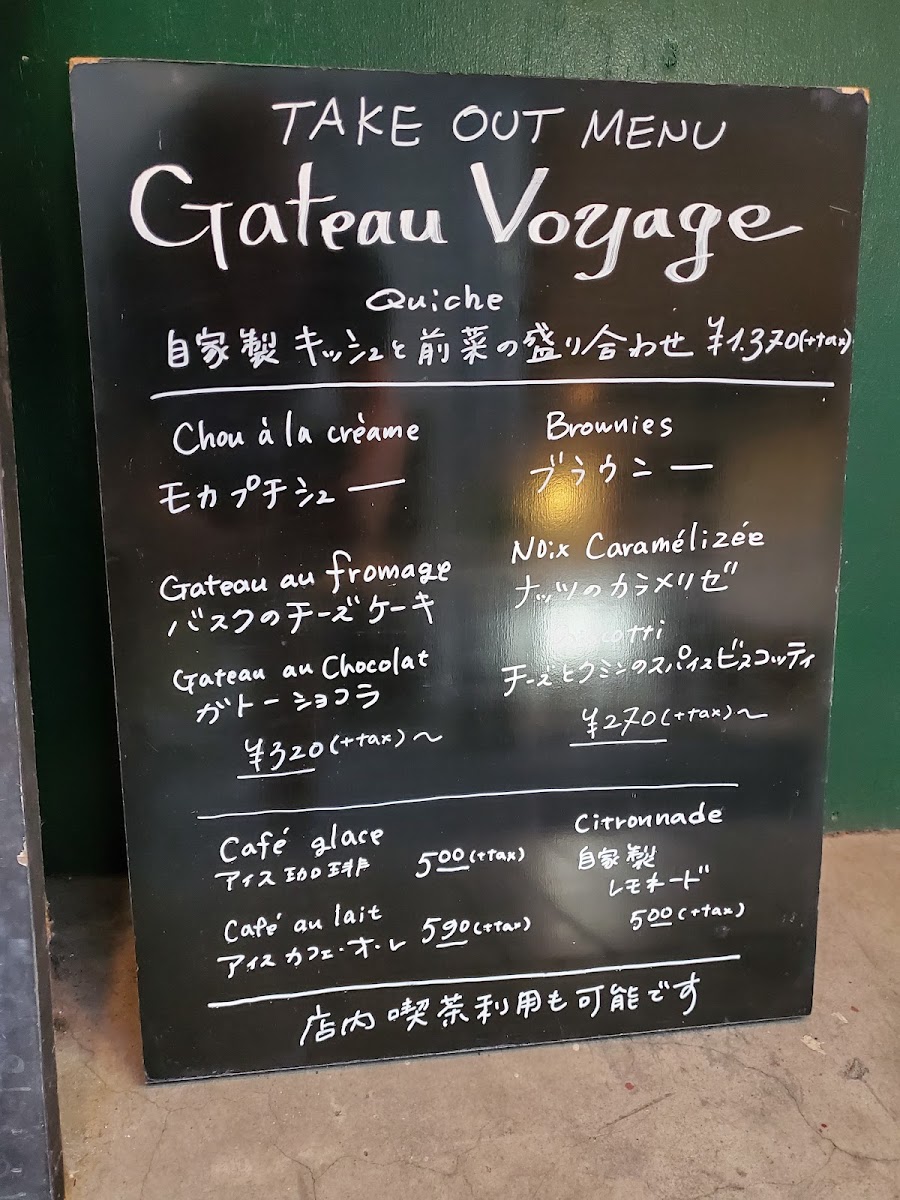 TAKE OUT MENU
Gateau Voyage
Quiche
自家製 キッシュと前菜の盛り合わせ ¥1.370(+tax)
Chou à la crèame
モカプチシュー
Gateau au fromage
バスクのチーズケーキ
Gateau au Chocolat
ガトーショコラ
¥320(+tax)〜
Brownies
ブラウニー
Noix Caramélizée
ナッツのカラメリゼ
チーズとクミンのスパイスビスコッティ
¥270(+tax)〜
Café glace
アイス珈琲 500(+tax)
Café au lait
アイスカフェ・オ・レ 590(+tax)
Citronnade
自家製
レモネード
500(+tax)
店内喫茶利用も可能です